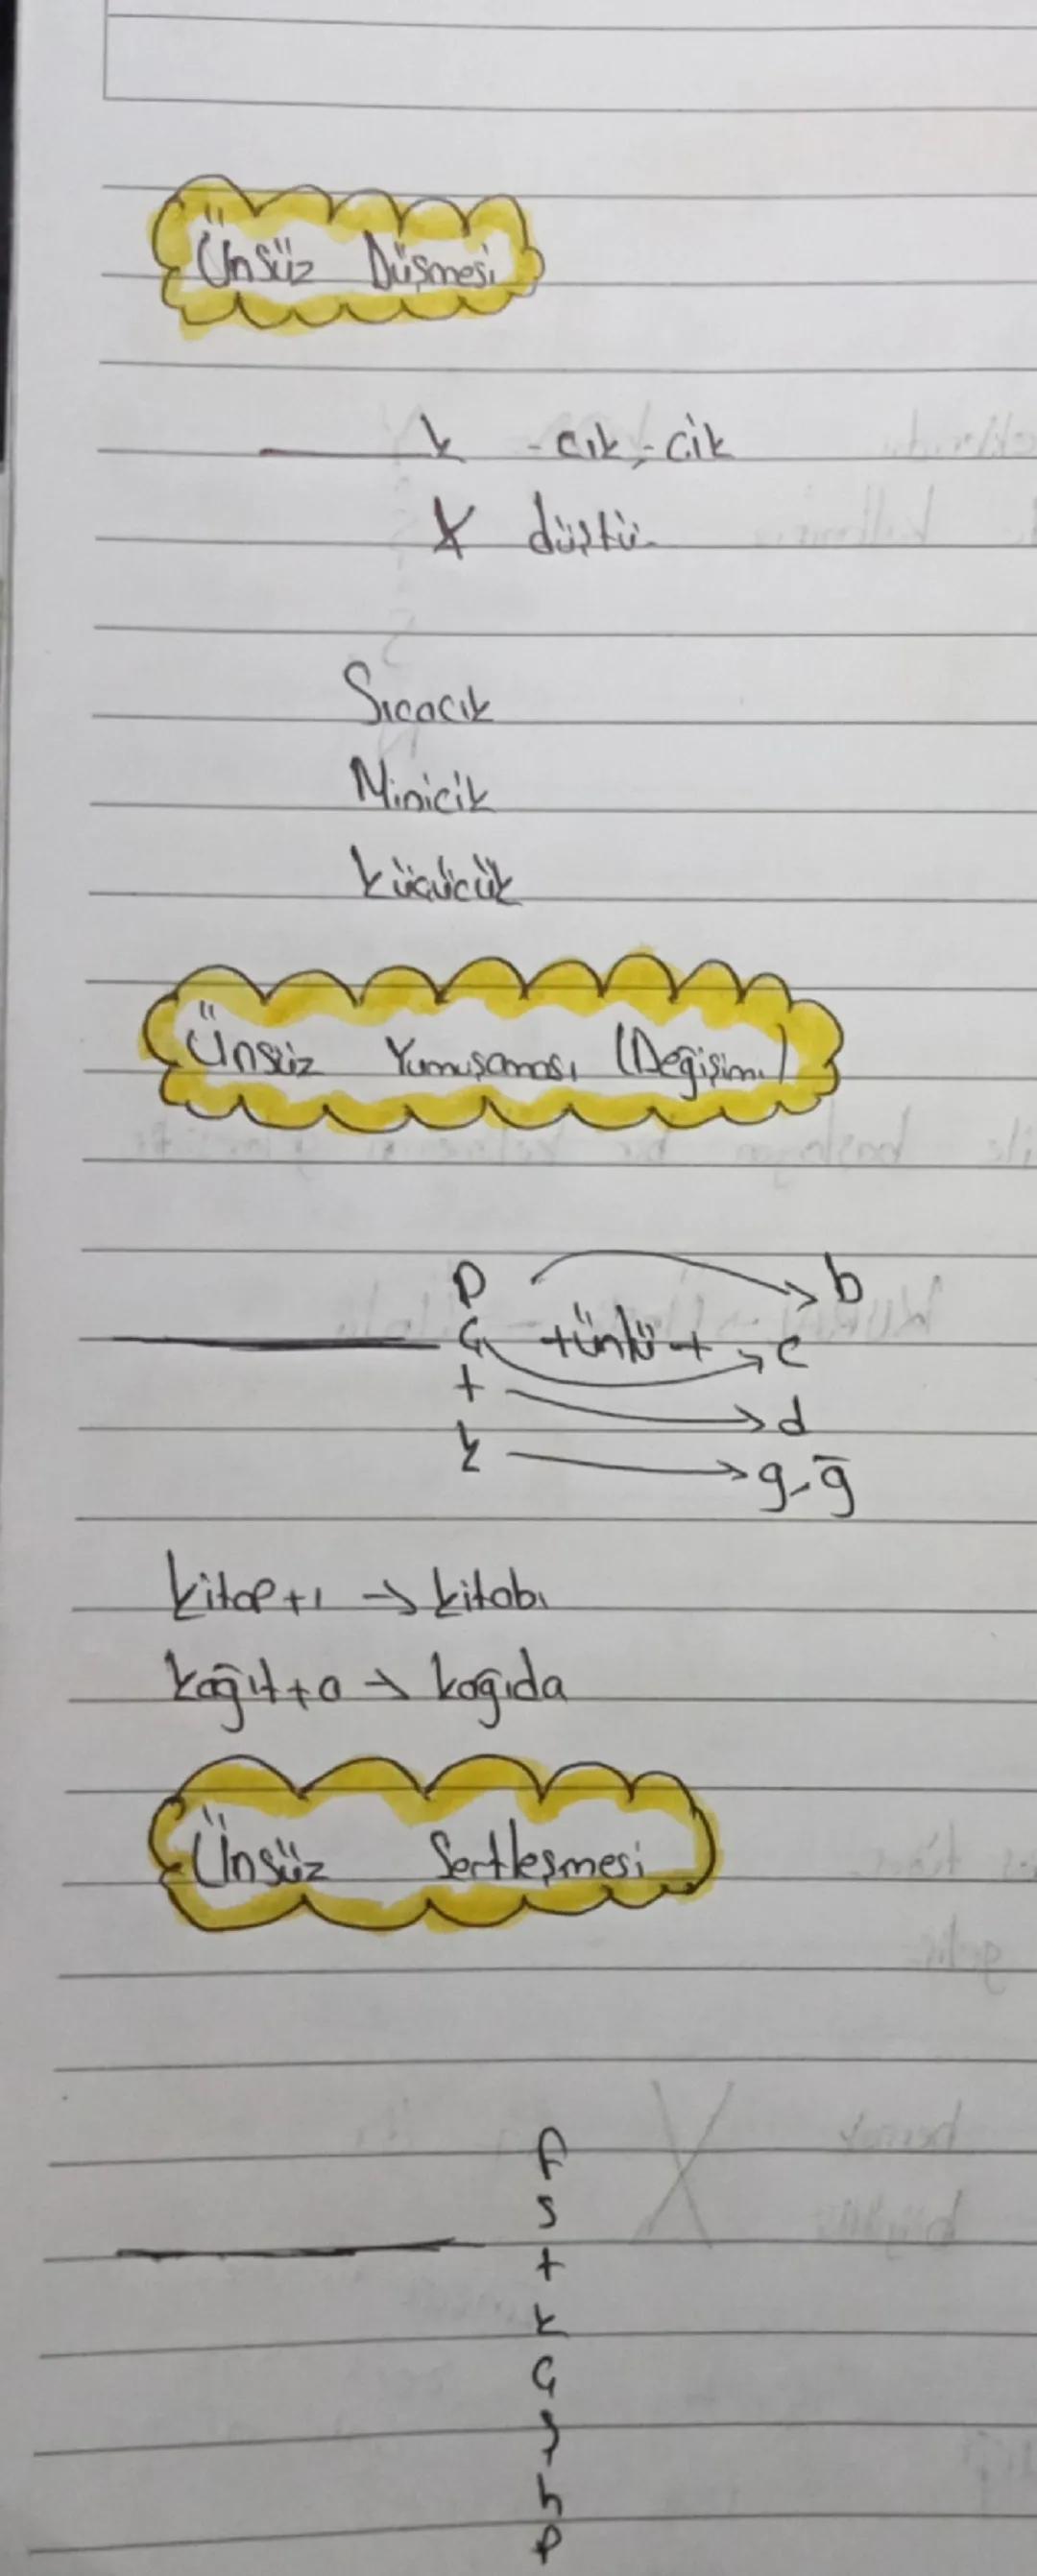 Ünsüz Düşmesi
k -cık,-cik
k düştü.
Sıcacık
Minicik
Küçücük
Ünsüz Yumuşaması (Değişimi)
p b
ç +ünlü+ c
t d
k g-ğ
kitap+ı → kitabı
kağıt+a → kağıda
Ünsüz Sertleşmesi
f
s
t
k
ç
ş
h
p